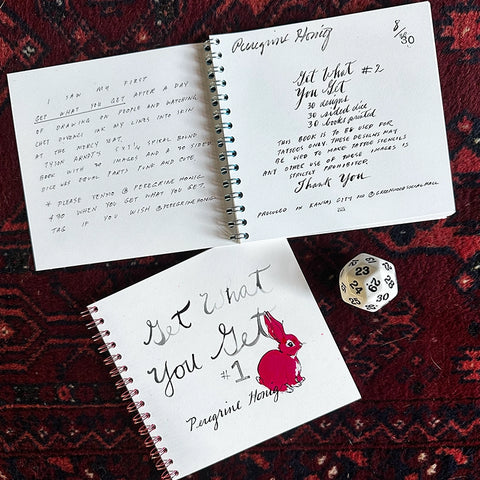 I SAW MY FIRST
GET WHAT YOU GET AFTER A DAY
OF DRAWING ON PEOPLE AND WATCHING
CHET DUVENCI INK MY LINES INTO SKIN
AT THE MERCY SEAT.
TYSON ARNDT'S SPIRAL BOUND
BOOK WITH 30 IMAGES AND A 30 SIDED
DICE WAS EQUAL PARTS PUNK AND CUTE.
* PLEASE VENMO @ PEREGRINE HONIG
$40 WHEN YOU GET WHAT YOU GET.
TAG IF YOU WISH @PEREGRINEHONIG
Peregrine Honig
8/30
Get What #2
You Get
30 designs
30 sided dice
30 books printed
THIS BOOK IS TO BE USED FOR
TATTOOS ONLY THESE DESIGNS MAY
BE USED TO MAKE TATTOO STENCILS
ANY OTHER USE OF THESE IMAGES IS
STRICTLY PROHIBITED.
Thank You
PRODUCED IN KANSAS CITY MO @GREENWOODSOCIALHALL
Get What
You Get
#1
Peregrine Honig
23
24
29
30